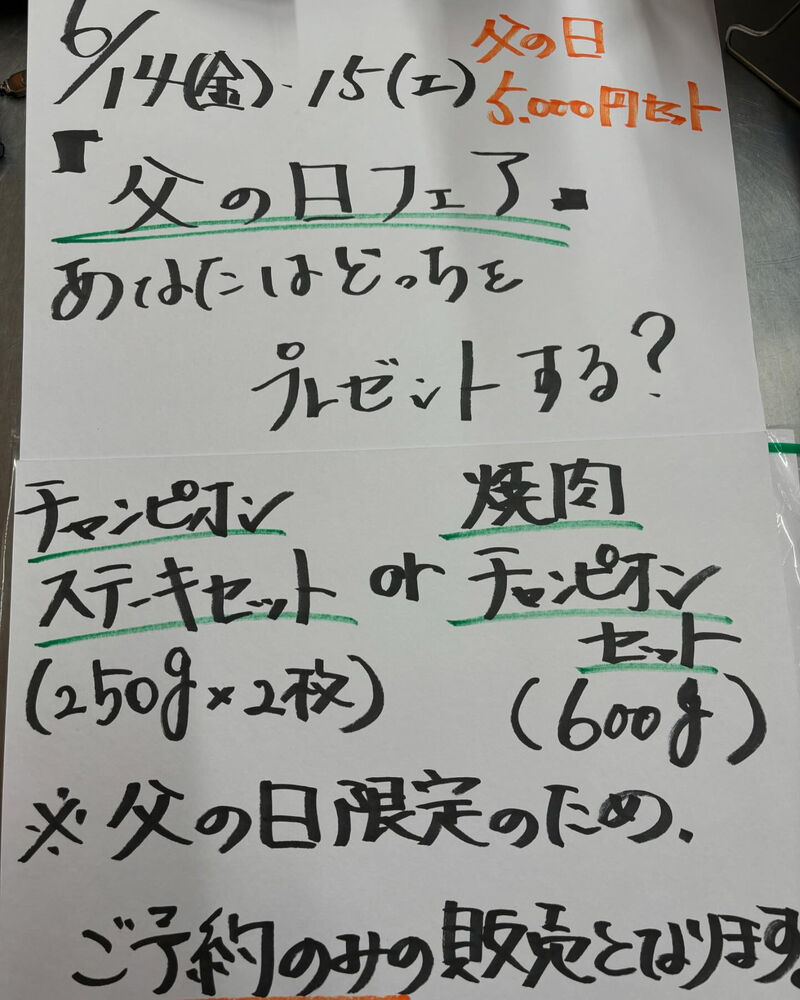 6/14(金)・15(土)
父の日
5.000円セット
『父の日フェア』
あなたにはどっちを
プレゼントする?
チャンピオン
ステーキセット
(250g×2枚)
or
焼肉
チャンピオン
セット
(600g)
※父の日限定のため、
ご予約のみの販売となります。